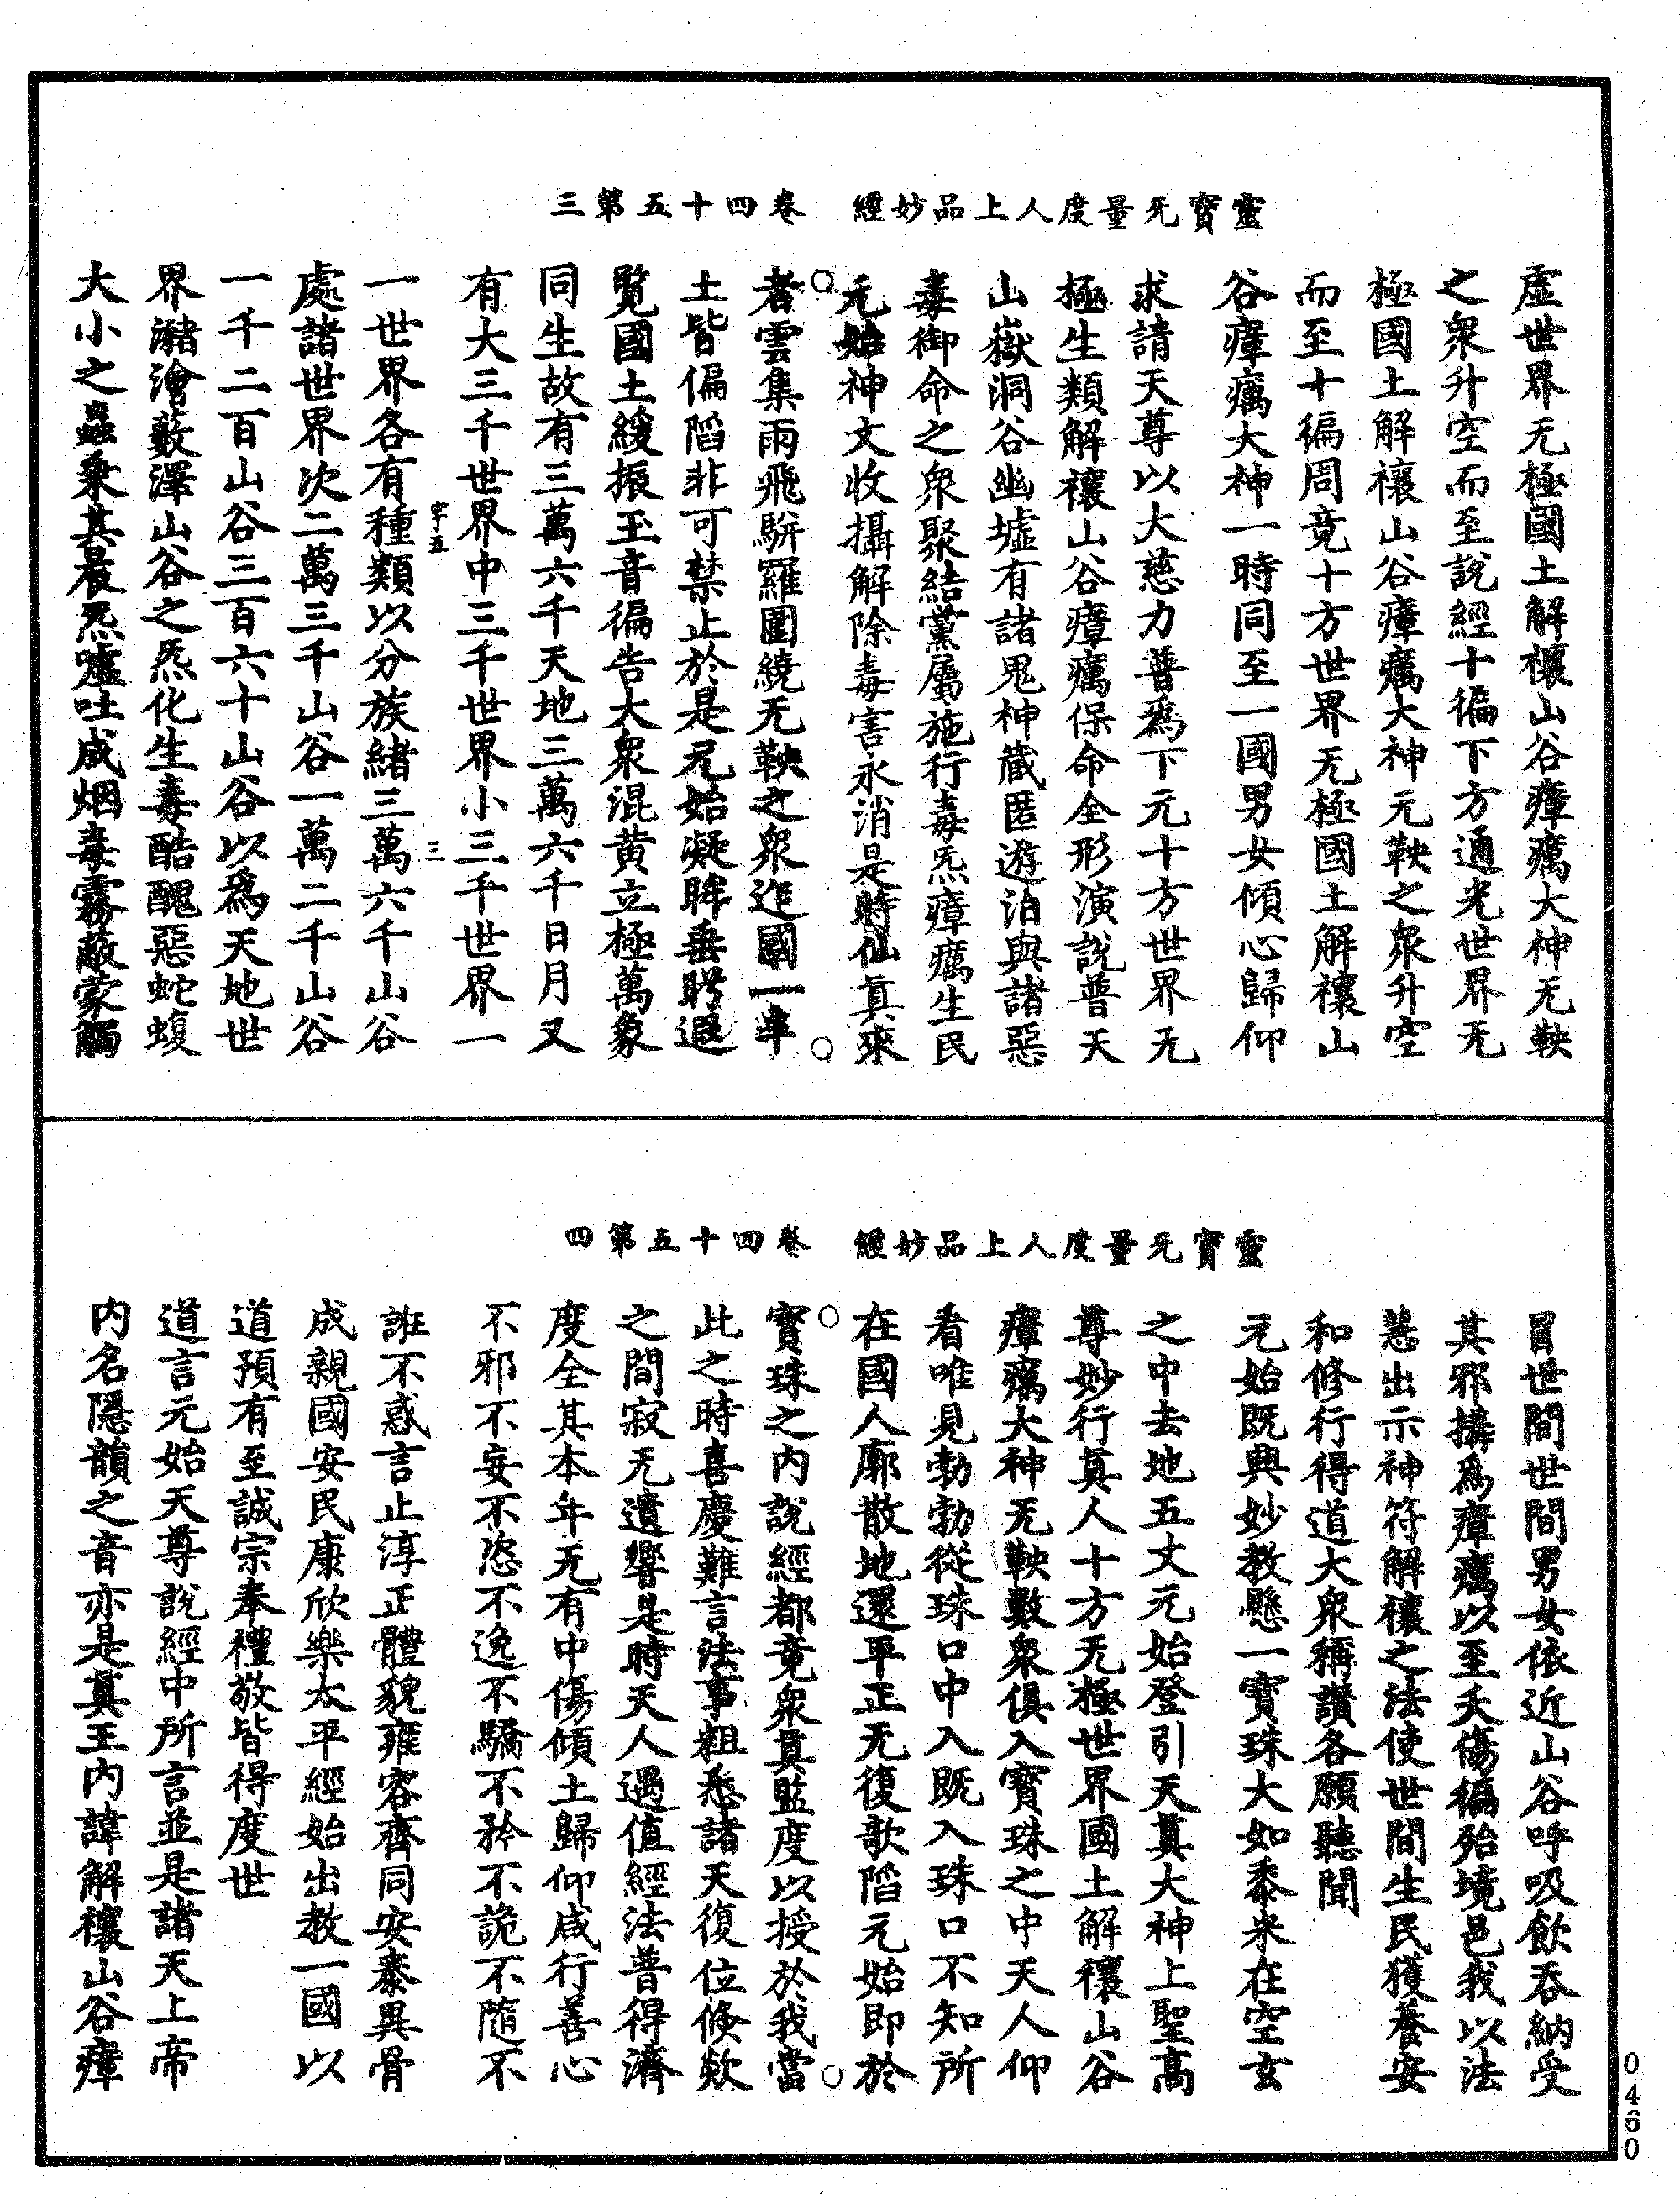 靈寶无量度人上品妙經　卷四十五第三
虛世界无極國土解禳山谷瘴癘大神无鞅
之衆升空而至說經十徧下方通光世界无
極國土解禳山谷瘴癘大神元鞅之衆升空
而至十徧周竟十方世界无極國土解禳山
谷瘴癘大神一時同至一國男女傾心歸仰
求請天尊以大慈力普爲下元十方世界无
極生類解禳山谷瘴癘保命全形演說普天
山嶽洞谷幽墟有諸鬼神藏匿遊泊與諸惡
毒御命之衆聚結黨屬施行毒炁瘴癘生民
元始神文收攝解除毒害永消是時仙眞來
者雲集雨飛駢羅圍繞无鞅之衆迮國一率
土皆偏陷非可禁止於是元始凝眸垂眄遐
覽國土緩振玉音徧告大衆混黃立極萬象
同生故有三萬六千天地三萬六千日月又
有大三千世界中三千世界小三千世界一
字五　三
一世界各有種類以分族緒三萬六千山谷
處諸世界次二萬三千山谷一萬二千山谷
一千二百山谷三百六十山谷以爲天地世
界瀦澮藪澤山谷之炁化生毒酷醜惡蛇蝮
大小之蟲乘其晨炁噓吐成烟毒霧蔽蒙觸
靈寶无量度人上品妙經　卷四十五第四
冒世間世間男女依近山谷呼吸飮吞納受
其邪搆爲瘴癘以至夭傷徧殆境邑我以法
慈出示神符解禳之法使世間生民獲養安
和修行得道大衆稱讚各願聽聞
元始既興妙教懸一寶珠大如黍米在空玄
之中去地五丈元始登引天眞大神上聖高
尊妙行眞人十方无極世界國土解禳山谷
瘴癘大神无鞅數衆俱入寶珠之中天人仰
看唯見勃勃從珠口中入既入珠口不知所
在國人廓散地還平正无復欹陷元始即於
寶珠之内說經都竟衆眞監度以授於我當
此之時喜慶難言法事粗悉諸天復位倏欻
之間寂无遺響是時天人遇值經法普得濟
度全其本年无有中傷傾土歸仰咸行善心
不邪不妄不恣不逸不驕不矜不詭不隨不
誑不惑言止淳正體貌雍容齊同安泰異骨
成親國安民康欣樂太平經始出教一國以
道預有至誠宗奉禮敬皆得度世
道言元始天尊說經中所言並是諸天上帝
内名隱韻之音亦是眞王内諱解禳山谷瘴
0460